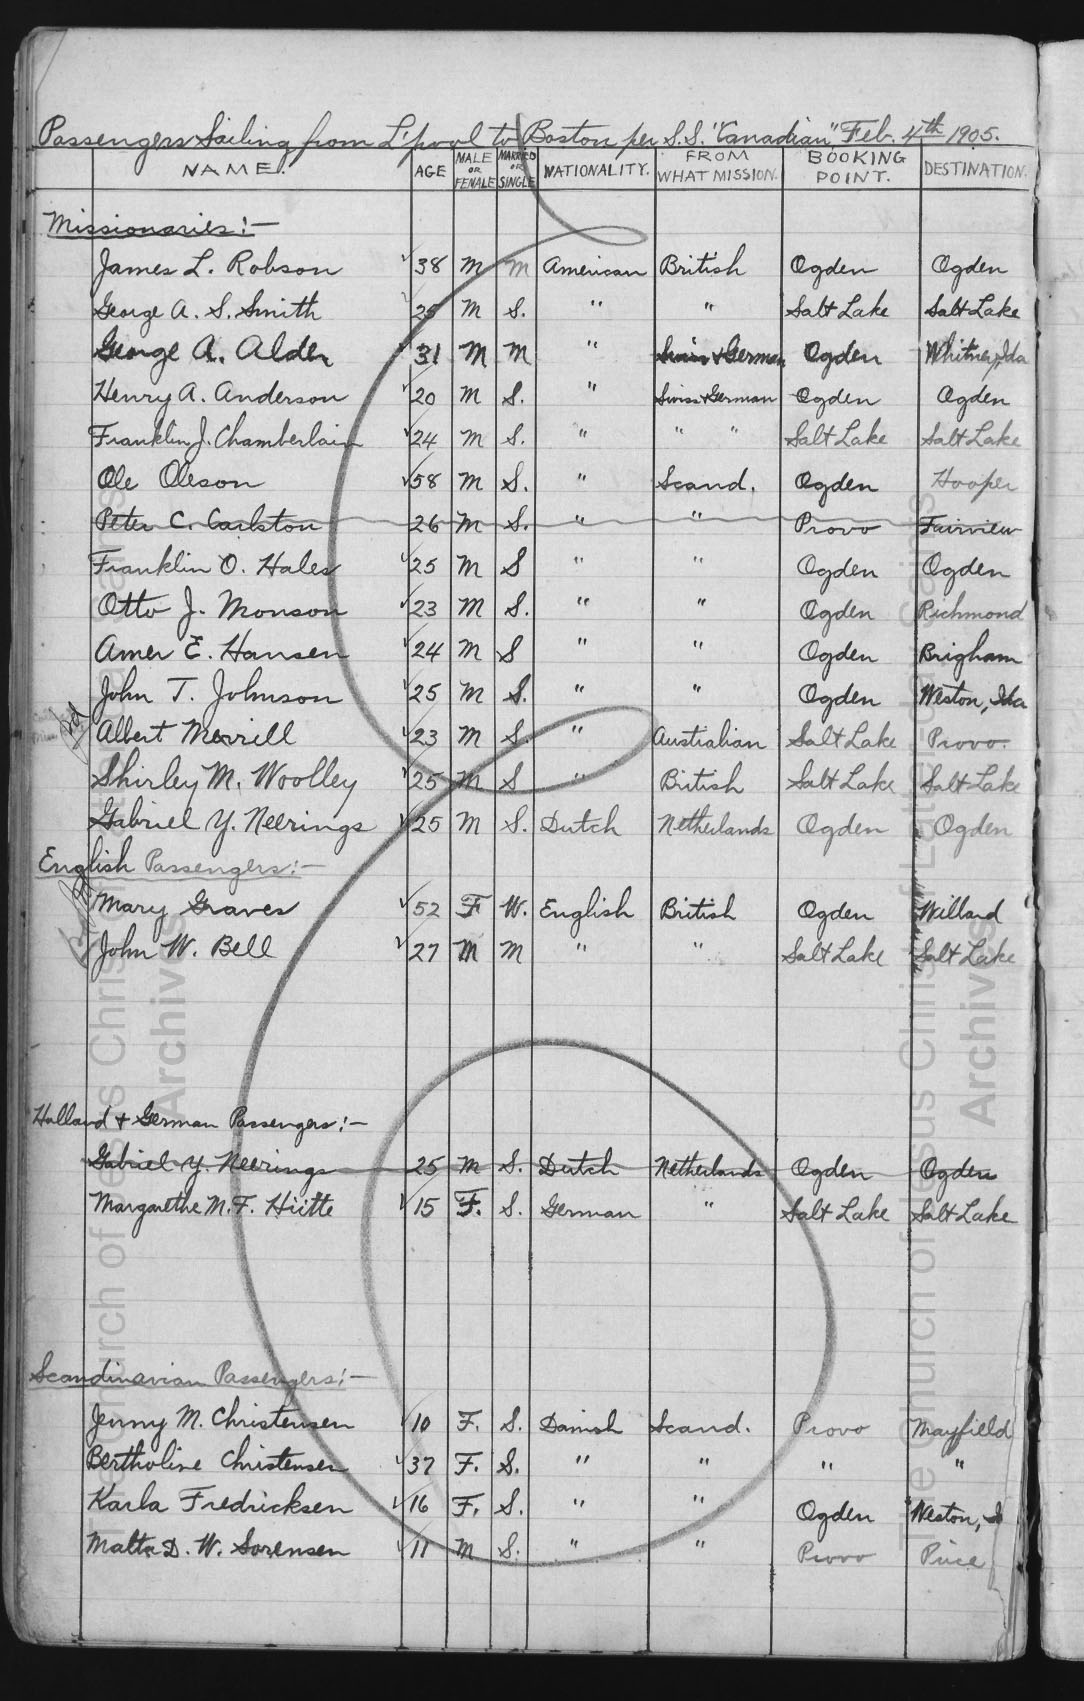 Passengers Sailing from L'pool to Boston per S.S. "Canadian", Feb. 4th 1905.
NAME. AGE MALE OR FEMALE MARRIED OR SINGLE NATIONALITY. FROM WHAT MISSION. BOOKING POINT. DESTINATION.
Missionaries:-
James L. Robson ✓ 38 M M American British Ogden Ogden
George A. S. Smith ✓ 25 M S. " " Salt Lake Salt Lake
George A. Alder ✓ 31 M M " Swiss & German Ogden Whitney, Ida
Henry A. Anderson ✓ 20 M S. " Swiss & German Ogden Ogden
Franklin J. Chamberlain ✓ 24 M S. " " " Salt Lake Salt Lake
Ole Oleson ✓ 58 M S. " Scand. Ogden Hooper
Peter C. Carlston 26 M S. " " Provo Fairview
Franklin O. Hales ✓ 25 M S " " Ogden Ogden
Otto J. Monson ✓ 23 M S. " " Ogden Richmond
Amer E. Hansen ✓ 24 M S " " Ogden Brigham
John T. Johnson ✓ 25 M S. " " Ogden Weston, Ida
Albert Merrill ✓ 23 M S. " Australian Salt Lake Provo.
Shirley M. Woolley ✓ 25 M S " British Salt Lake Salt Lake
Gabriel Y. Neerings ✓ 25 M S. Dutch Netherlands Ogden Ogden
English Passengers:-
Mary Graves ✓ 52 F W. English British Ogden Willard
John W. Bell ✓ 27 M M " " Salt Lake Salt Lake
Holland & German Passengers:-
Gabriel Y. Neerings 25 M S. Dutch Netherlands Ogden Ogden
Margarethe M. F. Hütte ✓ 15 F. S. German " Salt Lake Salt Lake
Scandinavian Passengers:-
Jenny M. Christensen ✓ 10 F. S. Danish Scand. Provo Mayfield
Bertholine Christensen ✓ 37 F. S. " " " "
Karla Fredricksen ✓ 16 F. S. " " Ogden Weston, I
Malta D. W. Sorensen ✓ 11 M S. " " Provo Price
The Church of Jesus Christ of Latter-day Saints
Archives
The Church of Jesus Christ of Latter-day Saints
Archives